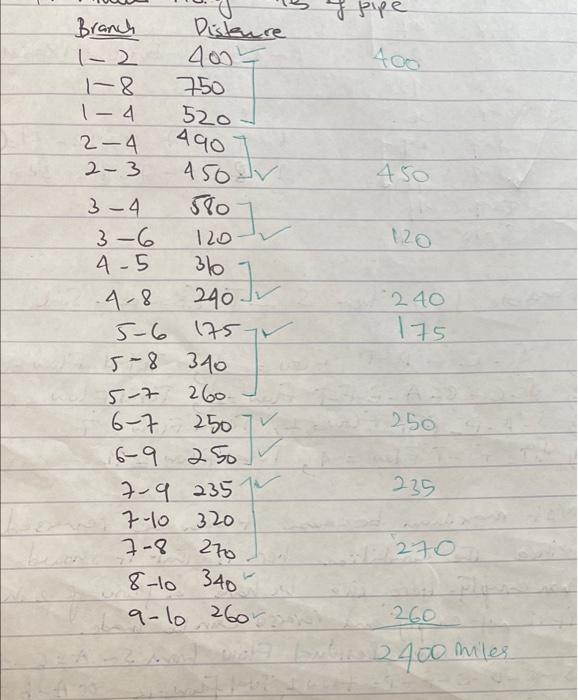 of pipe
Branch Distance
1-2 400 ✓ 400
1-8 750
1-4 520
2-4 490
2-3 450 ✓ 450
3-4 580
3-6 120 ✓ 120
4-5 310
4-8 240 ✓ 240
5-6 175 ✓ 175
5-8 340
5-7 260
6-7 250 ✓ 250
6-9 250 ✓
7-9 235 ✓ 235
7-10 320
7-8 270 270
8-10 340 ✓
9-10 260 ✓ 260
2400 miles